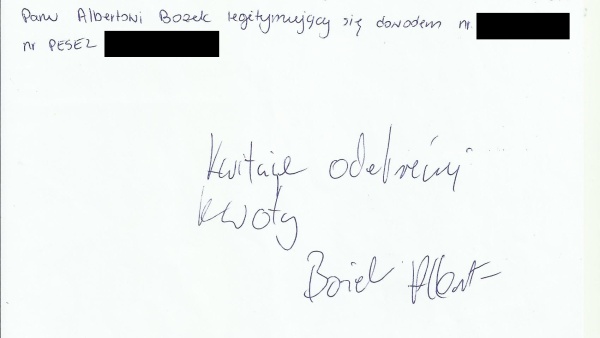 Panu Albertowi Bosek legitymujący się dowodem nr
nr PESEL
Kwituje odebranej
kwoty
Bosek Albert